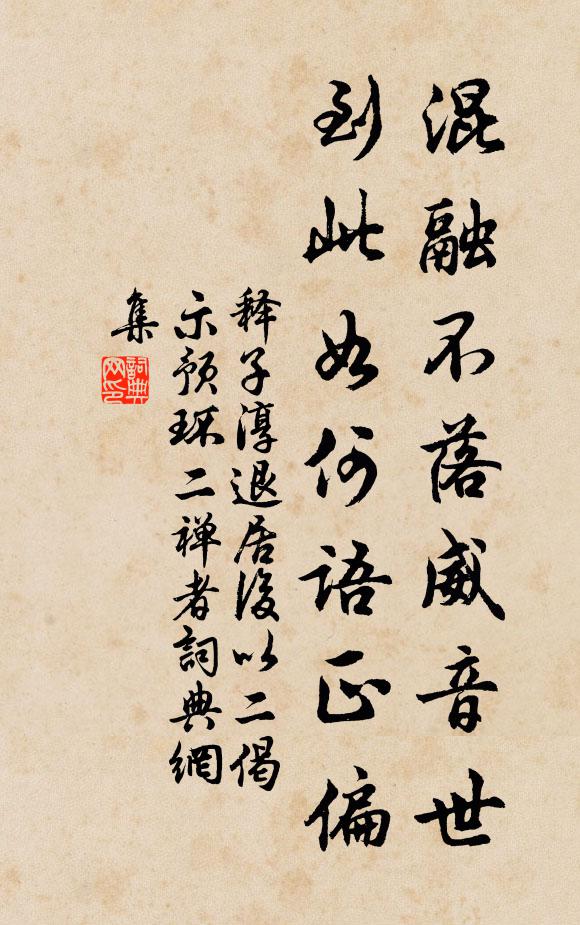 混融不落威音世
到此如何語正偏
释子淳退居後以二偈
示预环二禅者詞典網
集
詞典
网印